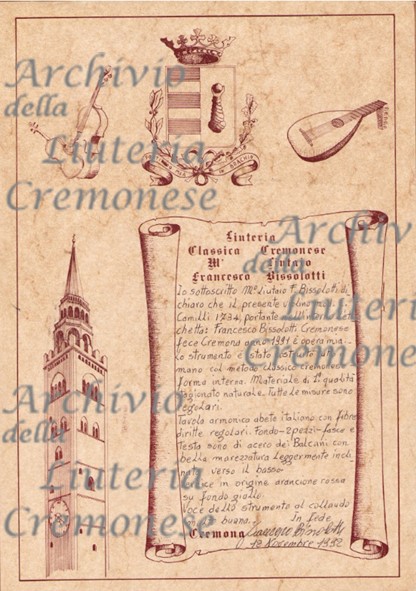 Archivio
della
Liuteria
Cremonese
Archivio
della
Liuteria
Cremonese
Archivio
della
Liuteria
Cremonese
Liuteria
Classica Cremonese
M° Liutaio
Francesco Bissolotti
Io sottoscritto M° liutaio F. Bissolotti di
chiaro che il presente violino mod.
Camilli 1734, portante all'interno l'eti
chetta: Francesco Bissolotti Cremonese
fece Cremona anno 1991 È opera mia.
Lo strumento è stato costruito a
mano col metodo classico cremonese
forma interna. Materiale di 1ª qualità
stagionato naturale. Tutte le misure sono
regolari.
Tavola armonica abete italiano con fibre
diritte regolari. Fondo-2 pezzi-fasce e
testa sono di acero dei Balcani con
bella marezzatura leggermente incli
nata verso il basso.
Vernice in origine arancione rossa
su fondo giallo.
Voce dello strumento al collaudo
buona. In fede
Cremona Francesco Bissolotti
18 Novembre 1992